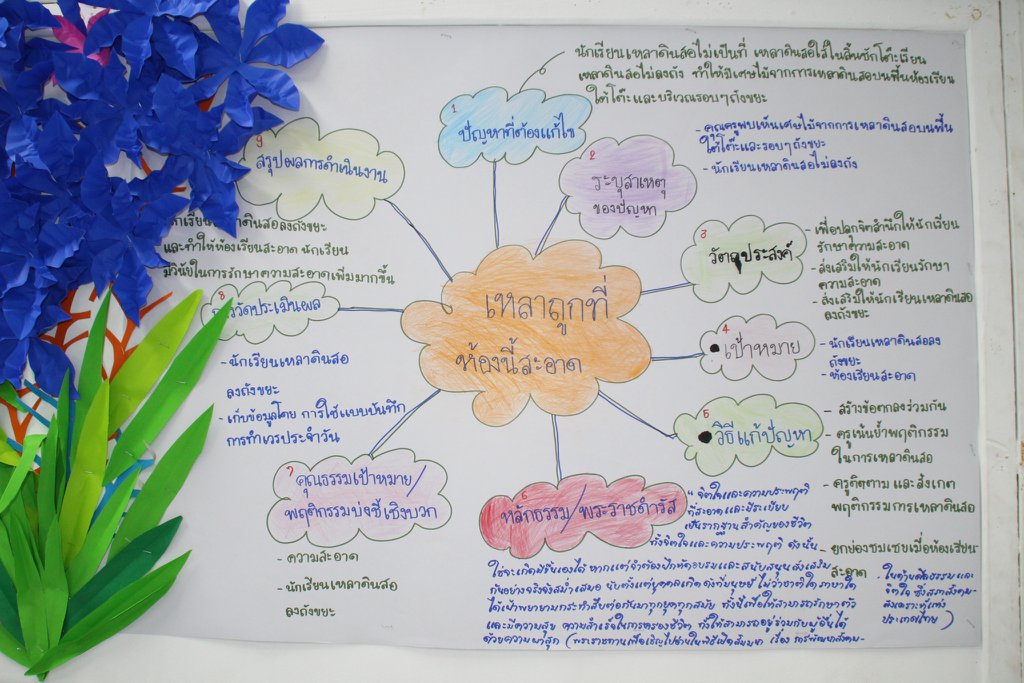 เหลาถูกที่
ห้องนี้สะอาด
1
ปัญหาที่ต้องแก้ไข
นักเรียนเหลาดินสอไม่เป็นที่ เหลาดินสอใส่ในลิ้นชักโต๊ะเรียน
เหลาดินสอไม่ลงถัง ทำให้มีเศษไม้จากการเหลาดินสอบนพื้นห้องเรียน
ใต้โต๊ะและบริเวณรอบๆถังขยะ
2
ระบุสาเหตุ
ของปัญหา
- คุณครูพบเห็นเศษไม้จากการเหลาดินสอบนพื้น
ใต้โต๊ะและรอบๆถังขยะ
- นักเรียนเหลาดินสอไม่ลงถัง
3
วัตถุประสงค์
- เพื่อปลูกจิตสำนึกให้นักเรียน
รักษาความสะอาด
- ส่งเสริมให้นักเรียนรักษา
ความสะอาด
- ส่งเสริมให้นักเรียนเหลาดินสอ
ลงถังขยะ
4
เป้าหมาย
- นักเรียนเหลาดินสอลง
ถังขยะ
- ห้องเรียนสะอาด
5
วิธีแก้ปัญหา
- สร้างข้อตกลงร่วมกัน
- ครูเน้นย้ำพฤติกรรม
ในการเหลาดินสอ
- ครูติดตาม และสังเกต
พฤติกรรมการเหลาดินสอ
- ยกย่องชมเชยเมื่อห้องเรียน
สะอาด
6
หลักธรรม/พระราชดำรัส
" จิตใจและความประพฤติ
ที่สะอาดและมีระเบียบ
เป็นรากฐานสำคัญของชีวิต
ทั้งจิตใจและความประพฤติ ดังนั้น
ใช่จะเกิดมีขึ้นเองได้ หากแต่จำต้องฝึกหัดอบรมและสนับสนุนส่งเสริม
กันอย่างจริงจังสม่ำเสมอ นับตั้งแต่บุคคลเกิด ดังที่มนุษย์ ไม่ว่าชาติใด ภาษาใด
ได้เฝ้าพยายามกระทำสืบต่อกันมาทุกยุคทุกสมัย ทั้งนี้เพื่อให้สามารถรักษาตัว
และมีความสุข ความสำเร็จในการครองชีวิต ทั้งให้สามารถอยู่ร่วมกับผู้อื่นได้
ด้วยความผาสุก (พระราชทานเพื่อเชิญไปอ่านในพิธีเปิดสัมมนา เรื่อง การพัฒนาสังคม-
ในด้านศีลธรรมและ
จิตใจ ซึ่งสภาสังคม-
สังเคราะห์แห่ง
ประเทศไทย )
7
คุณธรรมเป้าหมาย/
พฤติกรรมบ่งชี้เชิงบวก
- ความสะอาด
- นักเรียนเหลาดินสอ
ลงถังขยะ
8
วัดประเมินผล
- นักเรียนเหลาดินสอ
ลงถังขยะ
- เก็บข้อมูลโดย การใช้แบบบันทึก
การทำเวรประจำวัน
9
สรุปผลการดำเนินงาน
ดินสอลงถังขยะ
และทำให้ห้องเรียนสะอาด นักเรียน
มีวินัยในการรักษาความสะอาดเพิ่มมากขึ้น